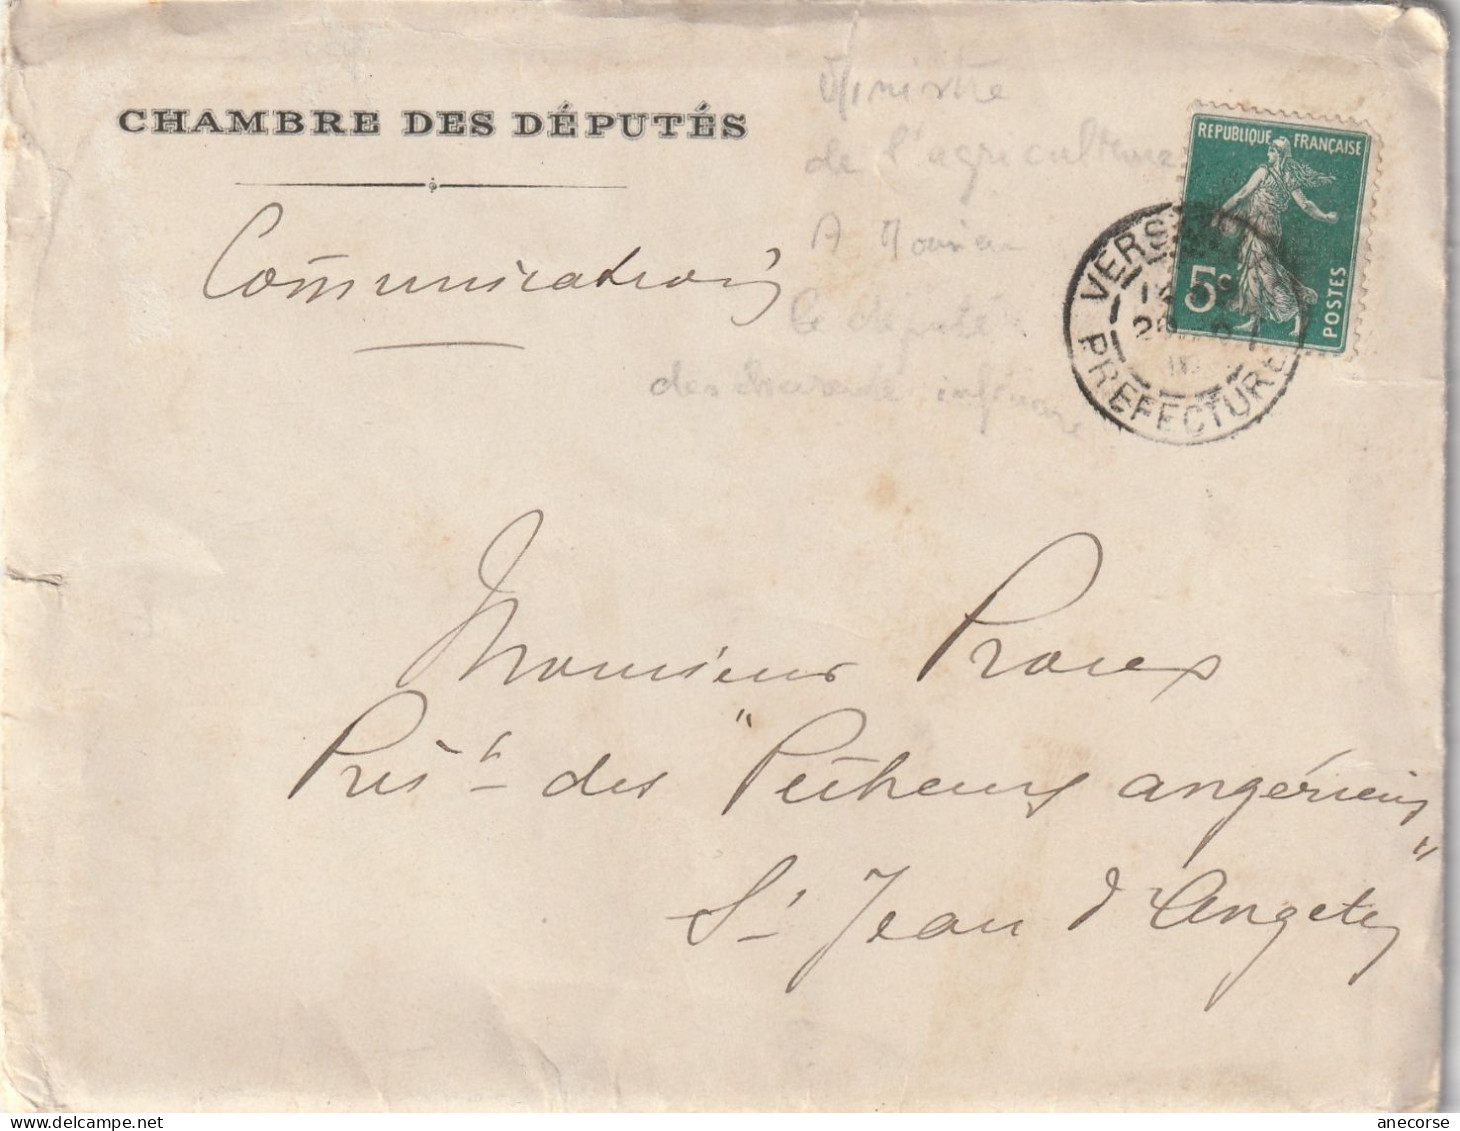 CHAMBRE DES DÉPUTÉS
Communication
Ministre
de l'agriculture
A Monsieur
le député
des charente inférieure
REPUBLIQUE FRANÇAISE
5c
POSTES
VERSAILLES
PREFECTURE
Monsieur Proux
Prést des "Pêcheurs angériens"
St Jean d'Angely
delcampe.net
anecorse